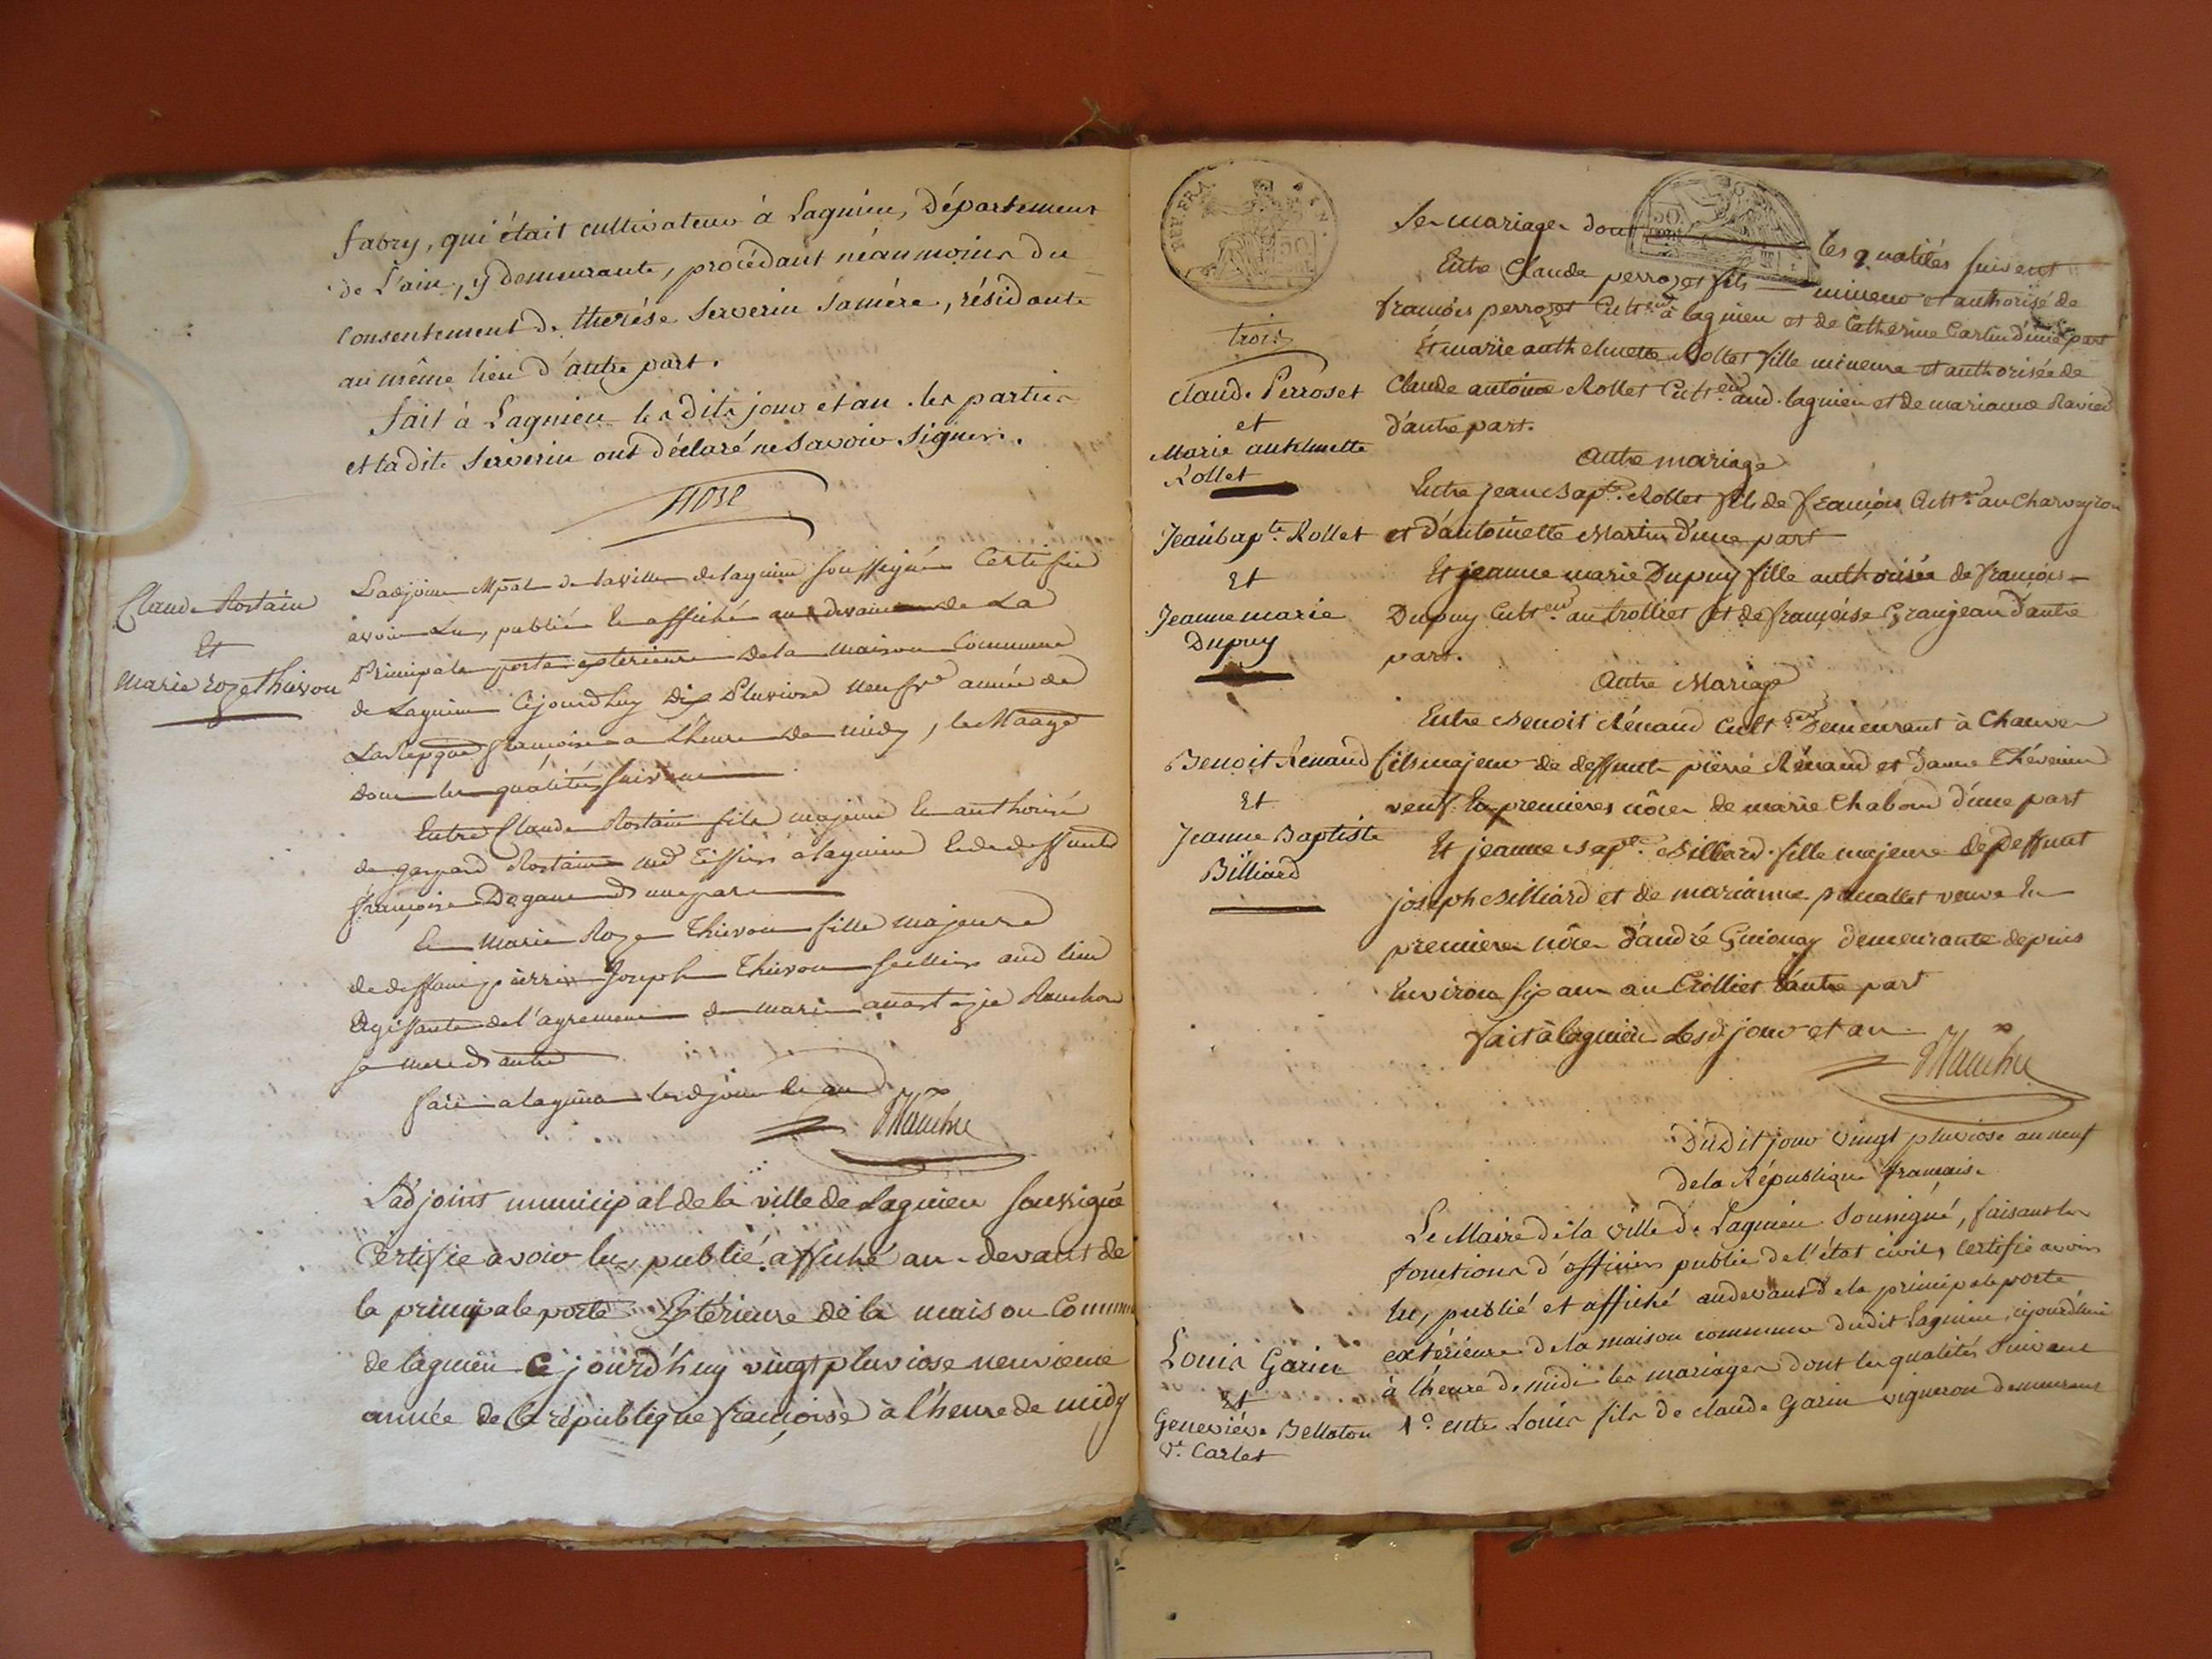 fabry, qui était cultivateur à Lagnieu, Département
de L'ain, y demeurante, procédant néanmoins du
consentement de therése Serverin sa mére, résidante
au même lieu d'autre part.
fait à Lagnieu les dits jour et an. les parties
et ladite Serverin ont déclaré ne savoir signer.
Claude Rostain
Et
Marie roze thievon
Ladjoint Mpal de la ville de lagnieu soussigné Certifie
avoir Lu, publié et affiché au devant de La
Principale porte exterieure de la maison Commune
de Lagnieu Cejourdhuy Dix Pluviose neufve année de
La Repque françoise a L'heure de midy, le Maage
dont les qualités suivent
Entre Claude Rostain fils majeur et authorisé
de gaspard Rostain md Tissier a lagnieu et de deffunte
françoise Degane d'une part
Et Marie Roze Thievon fille majeure
de deffunt pierre Joseph Thievon sellier aud lieu
Agissante de l'agrement de marie anastazie Ranchon
sa mere d'autre
fait a lagnieu lesd jour et an
L'adjoint municipal de la ville de Lagnieu soussigné
Certifie avoir lu, publié affiché au-devant de
la principale porte Extérieure de la maison Commune
de lagnieu Cejourd'huy vingt pluviose neuvieme
année de la république françoise à l'heure de midy
REP. FRA
50
50
Les mariages dont les qualités suivent
trois
Claude Perroset
et
Marie anthelmette
Rollet
Entre Claude perrozet fils mineur et authorisé de
françois perrozet Cultr à lagnieu et de Catherine Carlin d'une part
Et marie anthelmette Rollet fille mineure et authorisée de
Claude antoine Rollet Cultr aud. lagnieu et de marianne Ravier
d'autre part.
Autre mariage
Jean bapte Rollet
Et
Jeanne marie
Dupuy
Entre jean Bapte Rollet fils de françois Cultr au Charveyron
et d'antoinette Martin d'une part
Et jeanne marie Dupuy fille authorisée de françois
Dupuy Cultr au trolliet et de françoise Granjean d'autre
part.
Autre Mariage
Benoit Renand
Et
Jeanne Baptiste
Billiard
Entre Benoit Rénand Cultr demeurant à Chanves
fils majeur de deffunt pierre Rénand et d'anne Thévenin
veuf En premieres nôces de marie Chabou d'une part
Et jeanne Bapte Billiard fille majeure de Deffunt
joseph Billiard et de marianne panallet veuve En
premieres nôces d'andré Guionay demeurante depuis
Environ six ans au Trolliet d'autre part
fait à lagnieu Lesd jour et an
Dudit jour vingt pluviose an neuf
de la République française.
Le Maire de la ville de Lagnieu soussigné, faisant les
fonctions d'officier public de l'état civil, certifie avoir
lu, publié et affiché au devant de la principale porte
extérieure de la maison commune dudit Lagnieu, cejourd'hui
à l'heure de midi les mariages dont les qualités suivent
Louis Garin
Et
Genevieve Bellaton
Ve. Carlet
1o. entre Louis fils de claude Garin vigneron demeurant